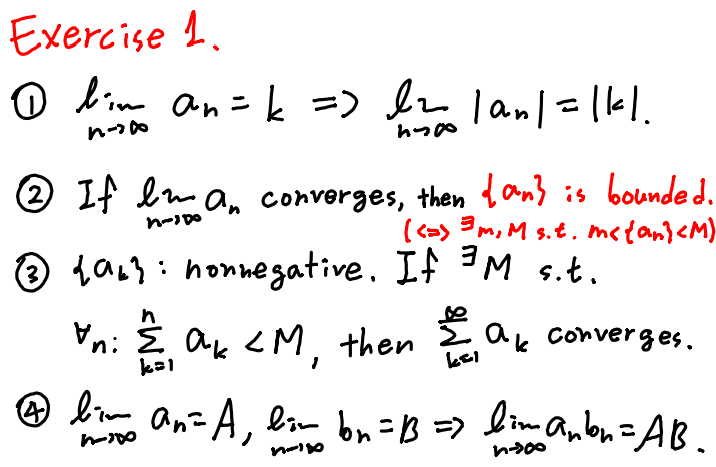 Exercise 1.
① lim_{n→∞} aₙ = k => lim_{n→∞} |aₙ| = |k|.
② If lim_{n→∞} aₙ converges, then {aₙ} is bounded.
(<=> ∃m, M s.t. m<{aₙ}<M)
③ {aₖ} : nonnegative. If ∃M s.t.
∀n: ∑_{k=1}^{n} aₖ < M, then ∑_{k=1}^{∞} aₖ converges.
④ lim_{n→∞} aₙ = A, lim_{n→∞} bₙ = B => lim_{n→∞} aₙbₙ = AB.